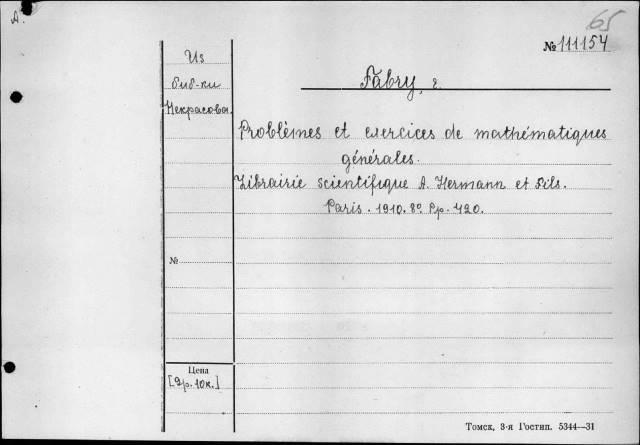 A.
65
№ 111154
Из
биб-ки
Некрасова.
Fabry, E.
Problèmes et exercices de mathématiques
générales.
Librairie scientifique A. Hermann et Fils.
Paris. 1910. 8º. Pp. 420.
№
Цена
[9р. 10к.]
Томск, 3-я Гостип. 5344—31